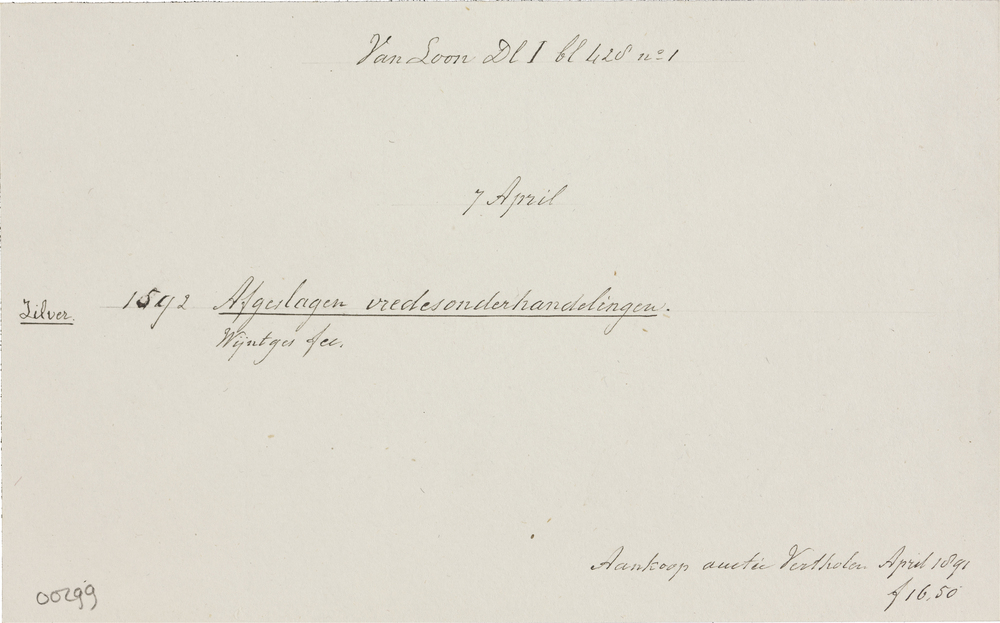 Van Loon Dl I bl 428 no 1
7 April
Zilver. 1592 Afgeslagen vredesonderhandelingen.
Wijntges fec.
Aankoop auctie April 1891
f 16,50
00299